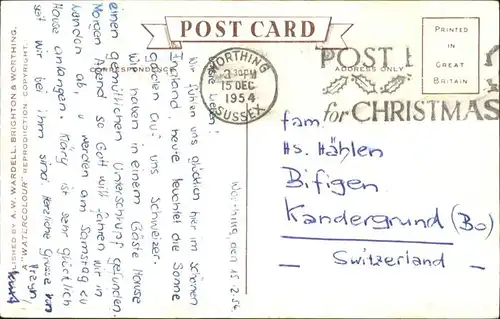 POST CARD
PRINTED
IN
GREAT
BRITAIN
ADDRESS ONLY
WORTHING
3-30PM
15 DEC
1954
SUSSEX
POST
for CHRISTMAS
PUBLISHED BY A. W. WARDELL, BRIGHTON & WORTHING.
A "WATERCOLOUR" REPRODUCTION COPYRIGHT.
Worthing, den 15.
Wir fühlen uns glücklich hier im schönen
England, heute leuchtet die Sonne
Schweizer.
Wir haben in einem Gäste House
einen gemütlichen Unterschlupf gefunden.
Morgen Abend so Gott will fahren wir in
ab, u werden am Samstag zu
Hause anlangen. Märy ist sehr glücklich
seit wir bei ihm sind. Herzliche Grüsse von
fam.
Hs. Hählen
Bifigen
Kandergrund (Bo)
- Switzerland -